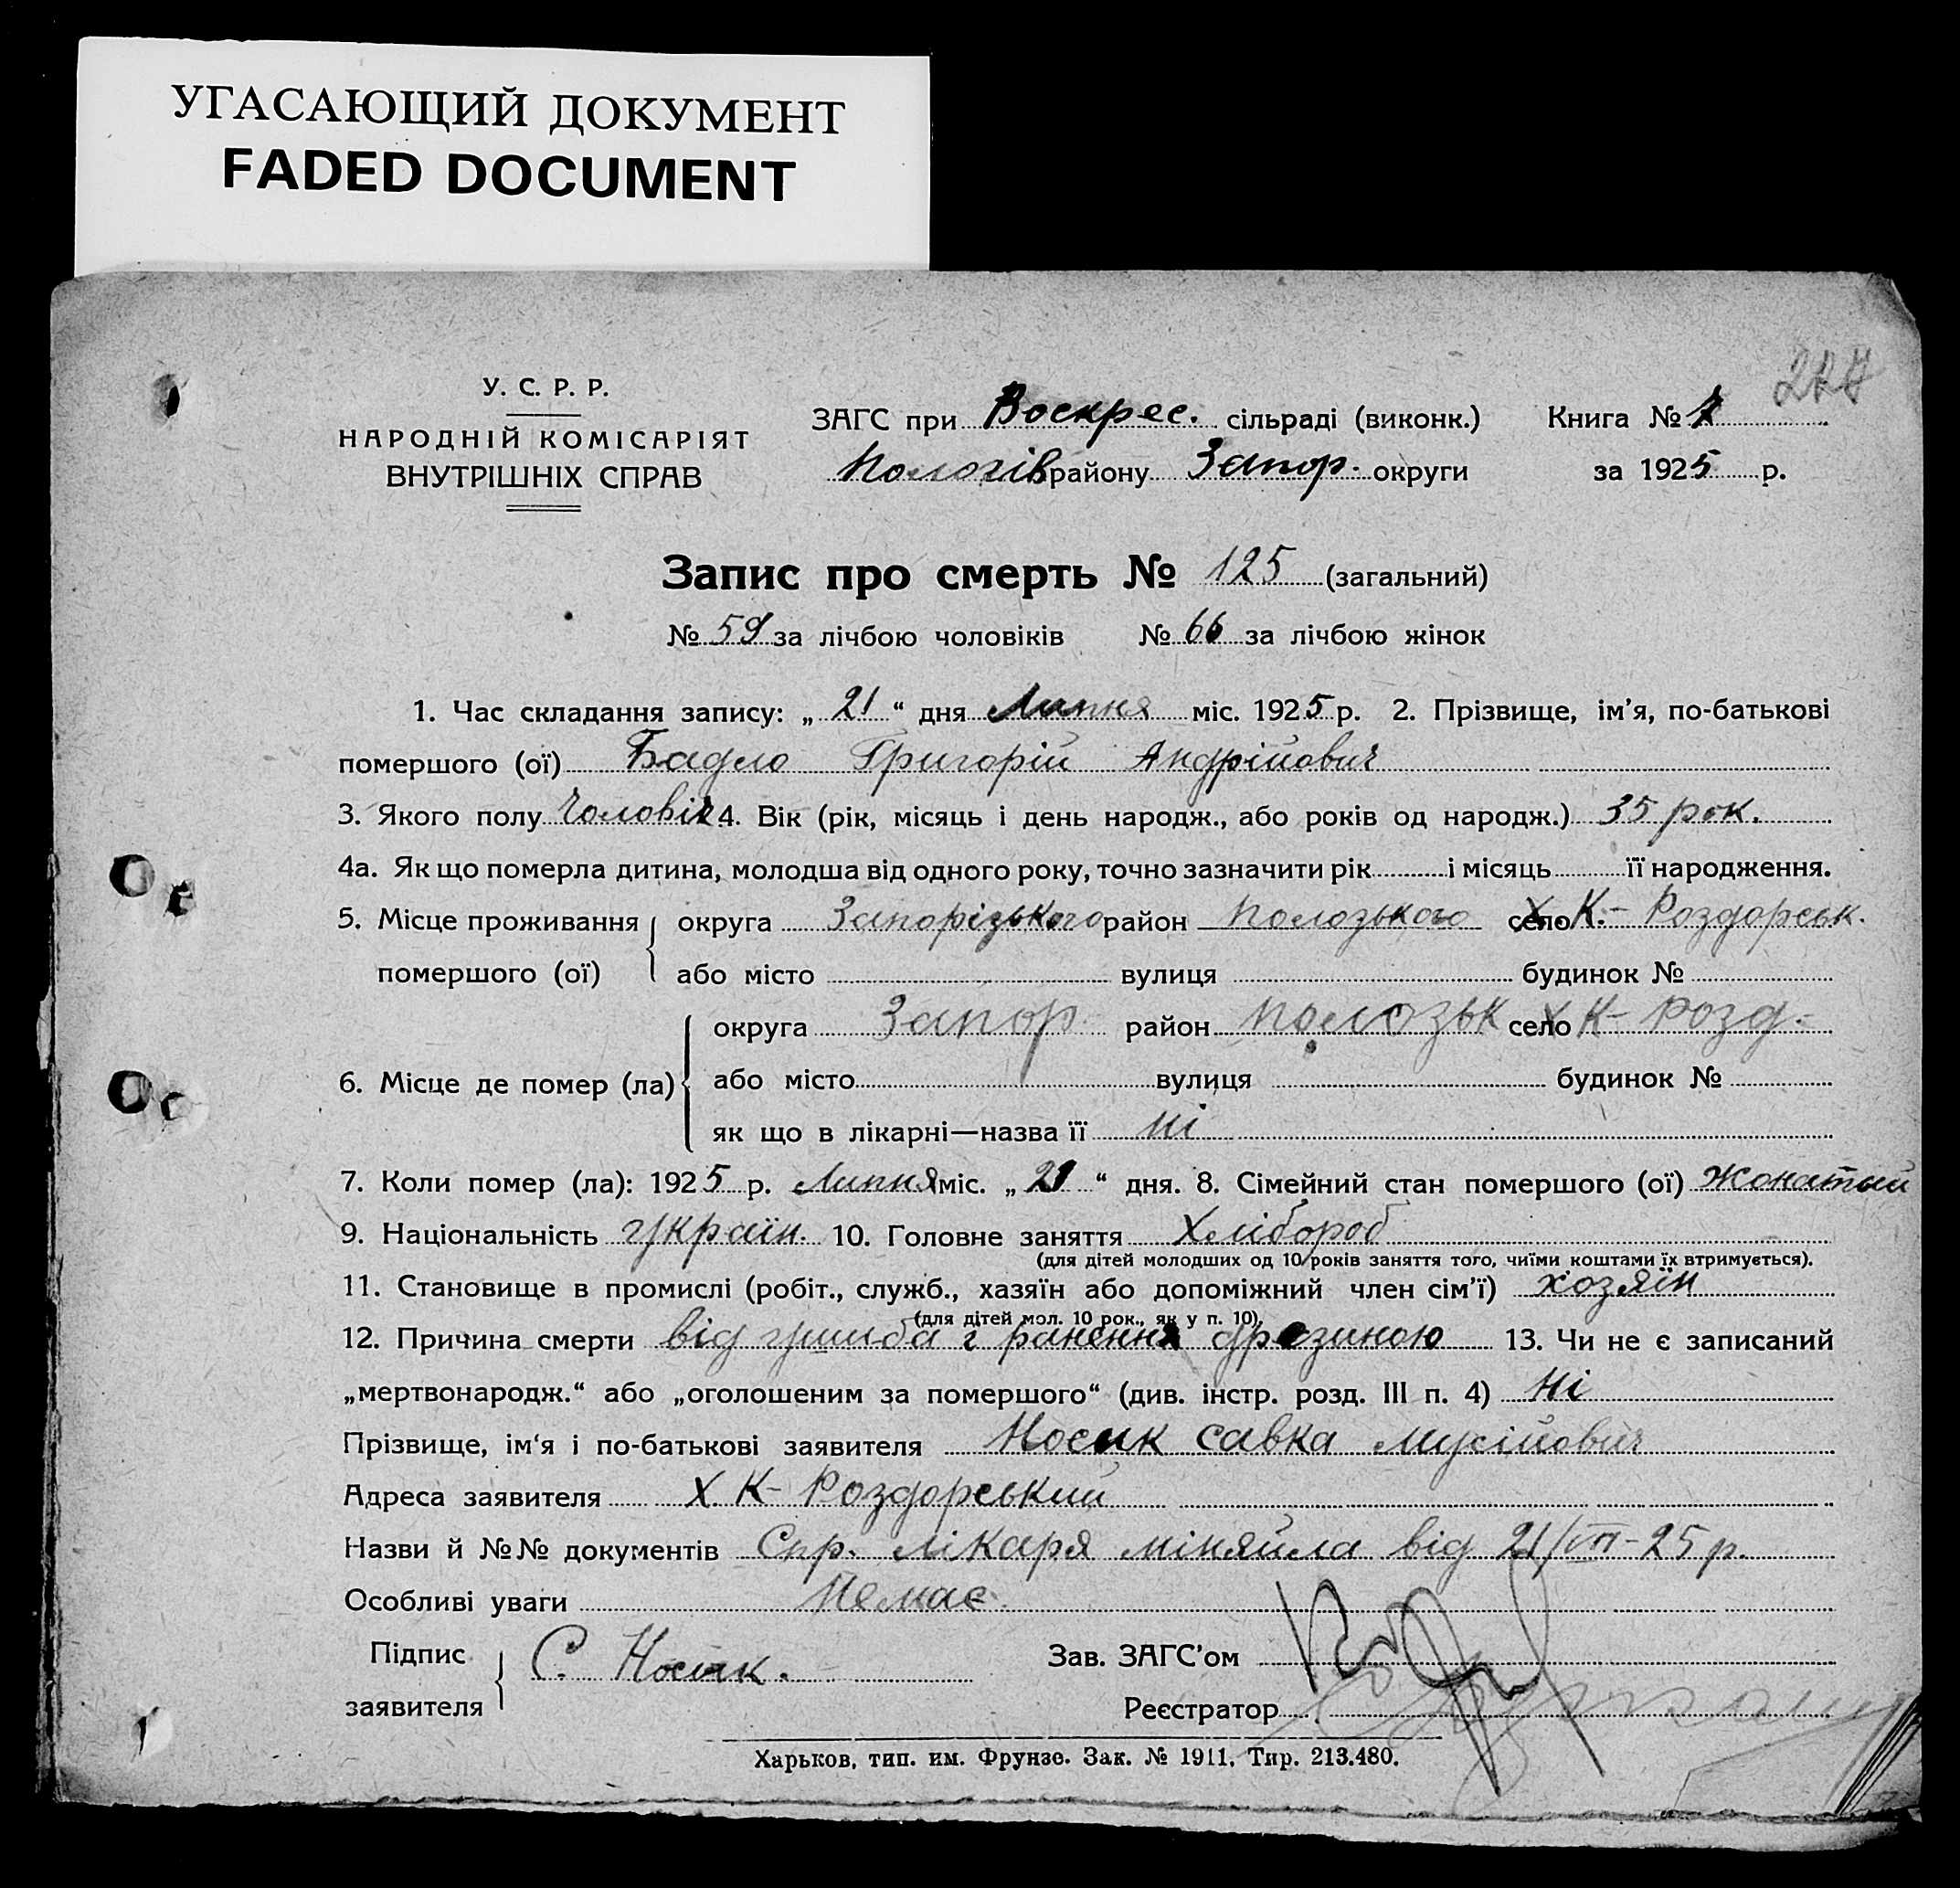 УГАСАЮЩИЙ ДОКУМЕНТ
FADED DOCUMENT
У. С. Р. Р.
НАРОДНІЙ КОМІСАРІЯТ
ВНУТРІШНІХ СПРАВ
ЗАГС при Воскрес. сільраді (виконк.) Книга №
Пологів району Запор. округи за 1925 р.
Запис про смерть № 125 (загальний)
№ 59 за лічбою чоловіків № 66 за лічбою жінок
1. Час складання запису: „ 21 “ дня Липня міс. 1925 р. 2. Прізвище, ім’я, по-батькові
помершого (ої) Бадло Григорій Андрійович
3. Якого полу Чоловіч 4. Вік (рік, місяць і день народж., або років од народж.) 35 рок.
4а. Як що померла дитина, молодша від одного року, точно зазначити рік і місяць її народження.
5. Місце проживання округа Запорізького район Полозького село Х. К.- Роздорськ.
помершого (ої) або місто вулиця будинок №
округа Запор район Полозьк село Х К- Розд.
6. Місце де помер (ла) або місто вулиця будинок №
як що в лікарні—назва її Ні
7. Коли помер (ла): 1925 р. Липня міс. „ 21 “ дня. 8. Сімейний стан помершого (ої) Жонатий
9. Національність Україн. 10. Головне заняття Хлібороб
(для дітей молодших од 10 років заняття того, чиїми коштами їх втримується).
11. Становище в промислі (робіт., служб., хазяїн або допоміжний член сім’ї) хозяїн
(для дітей мол. 10 рок., як у п. 10)
12. Причина смерти від ушиба і ранення дрезиною 13. Чи не є записаний
„мертвонародж.“ або „оголошеним за помершого“ (див. інстр. розд. III п. 4) Ні
Прізвище, ім‘я і по-батькові заявителя Носик Савка Мусійович
Адреса заявителя Х К- Роздорський
Назви й №№ документів Спр. лікаря міняйла від 21/VII-25 р.
Особливі уваги Немає
Підпис заявителя С. Носик. Зав. ЗАГС’ом
Реєстратор
Харьков, тип. им. Фрунзе. Зак. № 1911. Тир. 213.480.